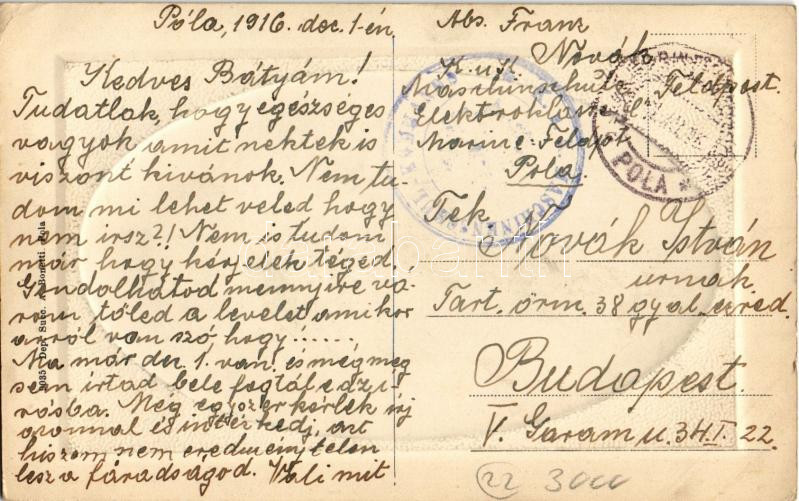 Póla, 1916. dec. 1-én
Kedves Bátyám!
Tudatlak, hogy egészséges
vagyok amit nektek is
viszont kivánok. Nem tu-
dom mi lehet veled hogy
nem irsz?! Nem is tudom
már hogy kérjelek téged.
Gondolhátod mennyire vá-
rom tőled a levelet amikor
arról van szó, hogy......
Ma már dec. 1. van. és még meg
sem irtad bele fogtál e az i-
rásba. Még egyszer kérlek irj
azonnal és
hiszem nem eredménytelen
lesz a fáradságod. Vali mit
Abs. Franz
Novák
K. u. K.
Maschinschule Feldpost.
Elektroklasse
Marine-Feldpst.
Pola.
POLA
MASCHINEN
Tek.
Novák István
urnak.
Tart. őrm. 38 gyal. ezred.
Budapest.
V. Garam u. 34. I. 22.
22 3000